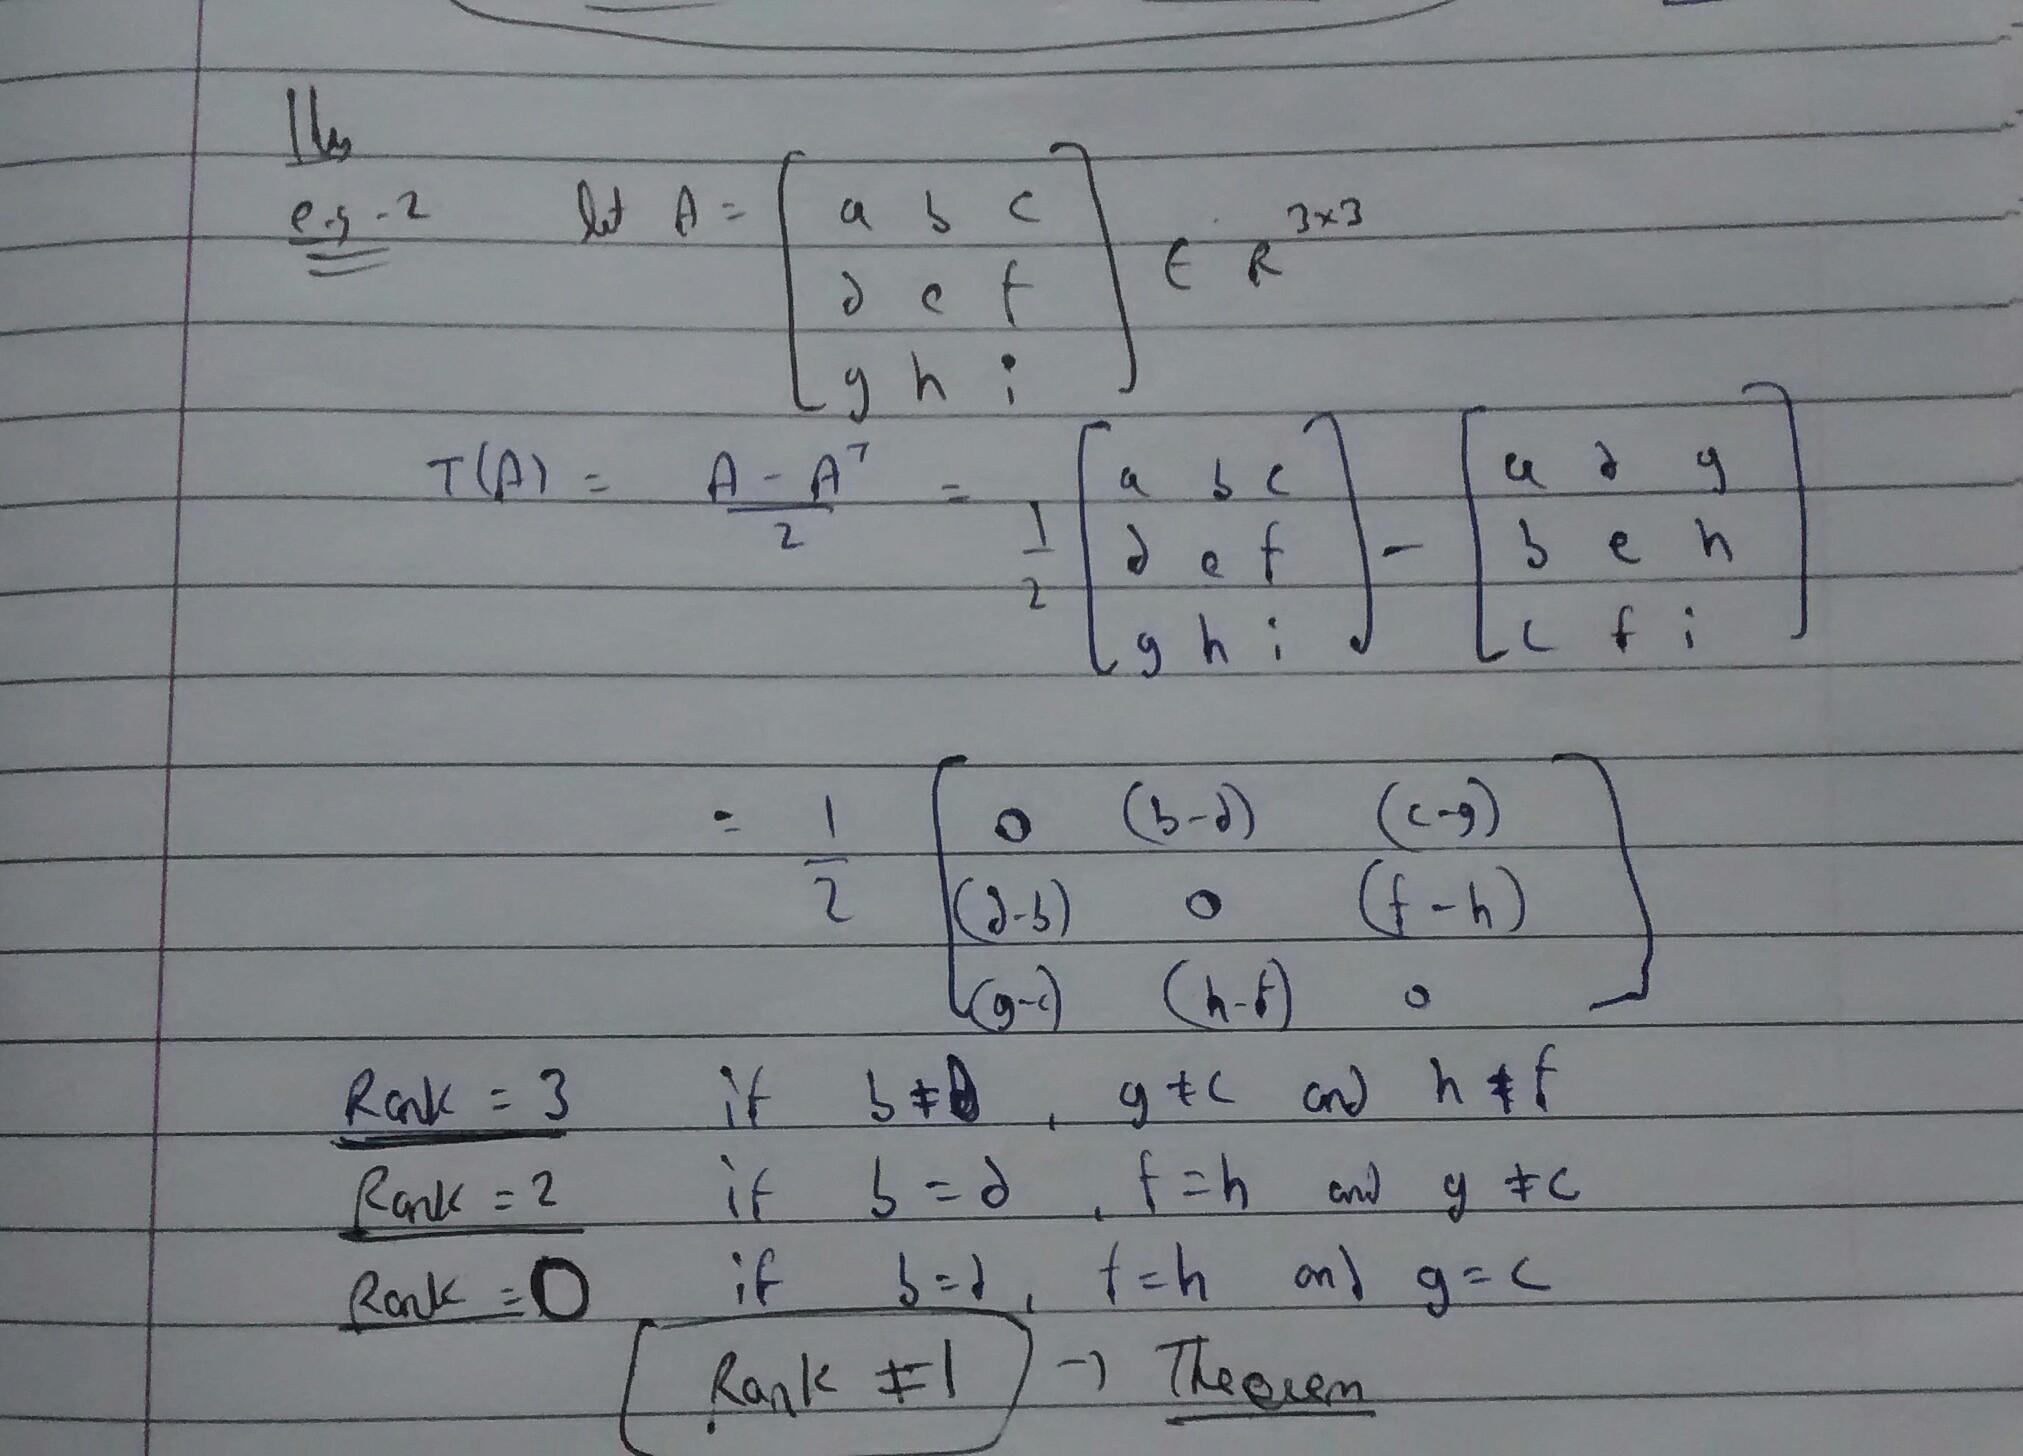 Ills
e.g.-2 let A = [ a b c
d e f
g h i ] ∈ R^{3×3}
T(A) = (A - A^T)/2 = 1/2 [ a b c
d e f
g h i ] - [ a d g
b e h
c f i ]
= 1/2 [ 0 (b-d) (c-g)
(d-b) 0 (f-h)
(g-c) (h-f) 0 ]
Rank = 3 if b ≠ d, g ≠ c and h ≠ f
Rank = 2 if b = d, f = h and g ≠ c
Rank = 0 if b = d, f = h and g = c
Rank ≠ 1 → Theorem